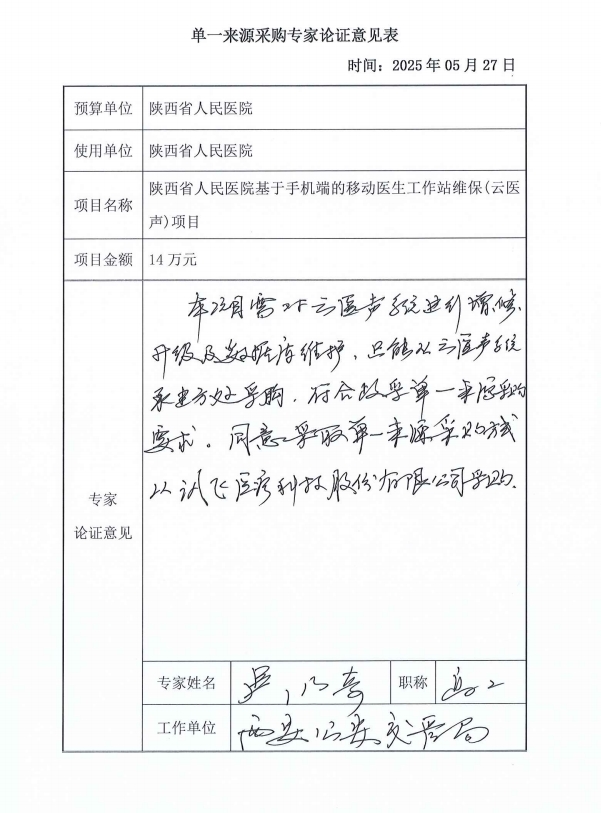 单一来源采购专家论证意见表
时间：2025年05月27日
预算单位 陕西省人民医院
使用单位 陕西省人民医院
项目名称 陕西省人民医院基于手机端的移动医生工作站维保(云医
声)项目
项目金额 14万元
专家
论证意见
本项目需对云医声系统进行增、修、
升级及数据库维护，只能从云医声系统
承建方处采购，符合政采单一来源采购
要求。同意采取单一来源采购方式
从讯飞医疗科技股份有限公司采购.
专家姓名 职称 高工
工作单位 西安公安交管局